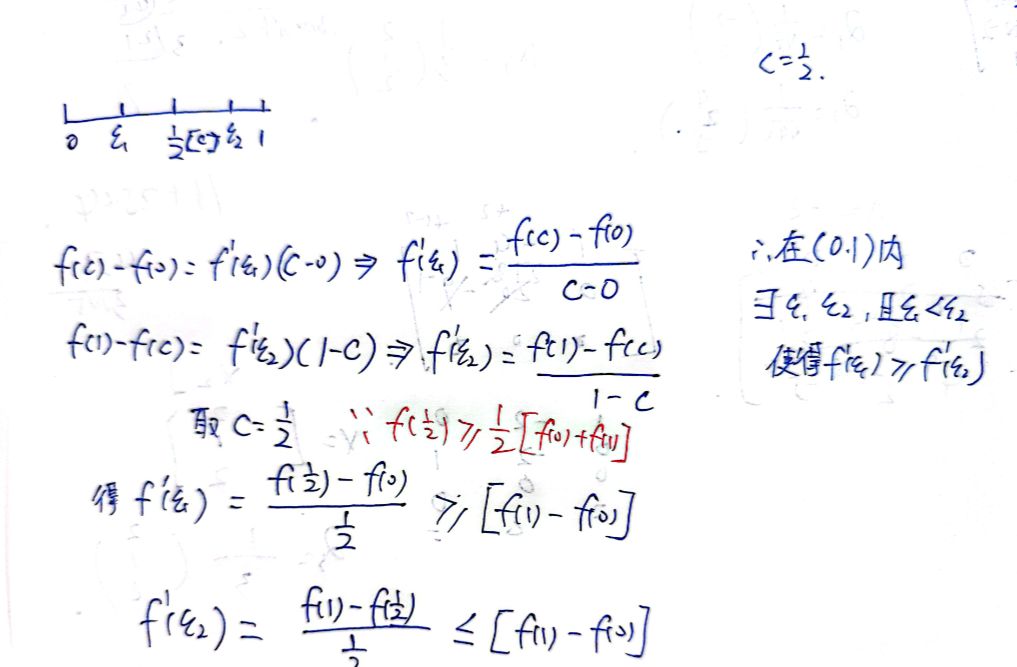 c=1/2.
0 ξ₁ 1/2[c] ξ₂ 1
f(c)-f(0)=f'(ξ₁)(c-0)⇒ f'(ξ₁) = (f(c)-f(0))/(c-0)
f(1)-f(c)= f'(ξ₂)(1-c)⇒ f'(ξ₂)= (f(1)-f(c))/(1-c)
取 c=1/2 ∵ f(1/2)≥1/2[f(0)+f(1)]
得 f'(ξ₁) = (f(1/2)-f(0))/(1/2) ≥ [f(1)-f(0)]
f'(ξ₂)= (f(1)-f(1/2))/(1/2) ≤ [f(1)-f(0)]
∴在(0.1)内
∃ ξ₁ ξ₂ ,且ξ₁<ξ₂
使得f'(ξ₁)≥f'(ξ₂)